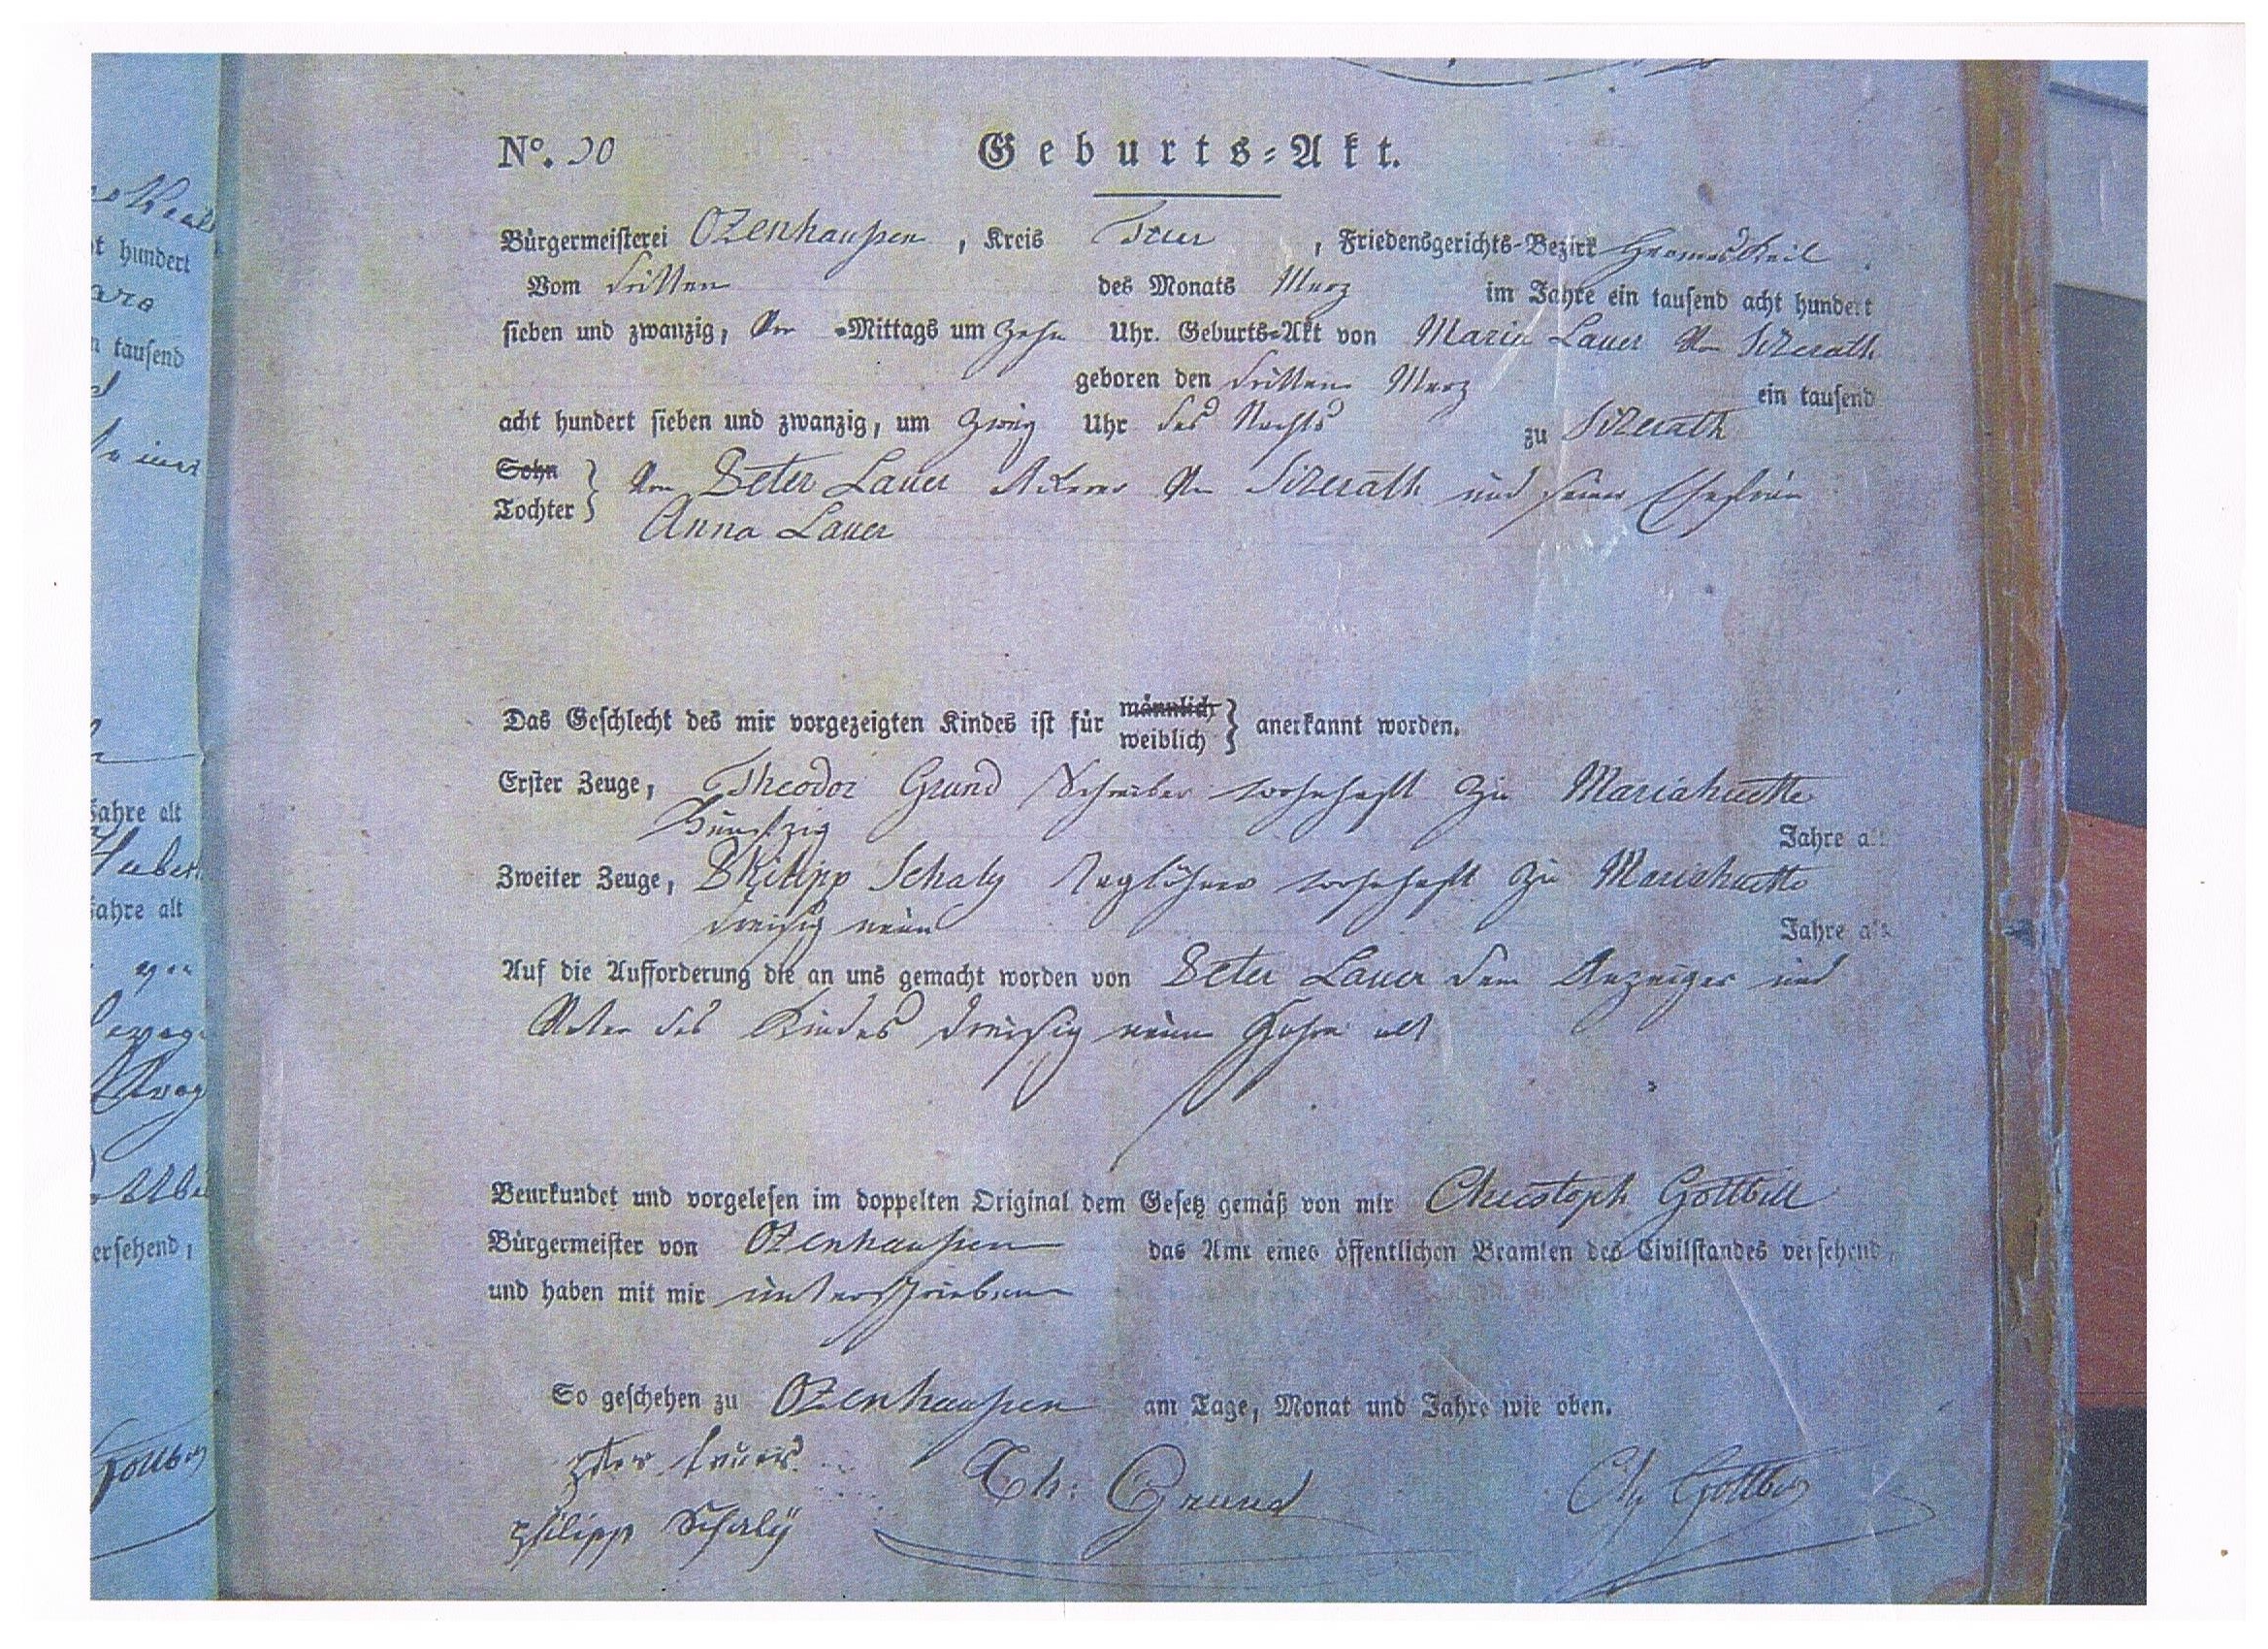 No. 20 Geburts-Akt.
Bürgermeisterei Ozenhausen, Kreis Trier, Friedensgerichts-Bezirk Hermeskeil.
Vom dritten des Monats Merz im Jahre ein tausend acht hundert
sieben und zwanzig, Vor-Mittags um Zehn Uhr. Geburts-Akt von Maria Lauer von Sizerath
geboren den dritten Merz ein tausend
acht hundert sieben und zwanzig, um Zwey Uhr des Nachts zu Sizerath
Sohn
Tochter } von Peter Lauer Ackerer von Sizerath und seiner Ehefrau
Anna Lauer
Das Geschlecht des mir vorgezeigten Kindes ist für männlich weiblich } anerkannt worden.
Erster Zeuge, Theodor Grund Schreiber wohnhaft zu Mariahuette
Fünfzig Jahre
Zweiter Zeuge, Philipp Schaly Taglöhner wohnhaft zu Mariahuette
dreißig neün Jahre
Auf die Aufforderung die an uns gemacht worden von Peter Lauer dem Anzeiger und
Vater des Kindes dreißig neün Jahre alt
Beurkundet und vorgelesen im doppelten Original dem Gesetz gemäß von mir Christoph Gottbill
Bürgermeister von Ozenhausen das Amt eines öffentlichen Beamten des Civilstandes versehend,
und haben mit mir unterschrieben
So geschehen zu Ozenhausen am Tage, Monat und Jahre wie oben.
Peter Lauer Th: Grund Ch Gottbill
Philipp Schalÿ
hundert
tausend
Jahre alt
Jahre alt